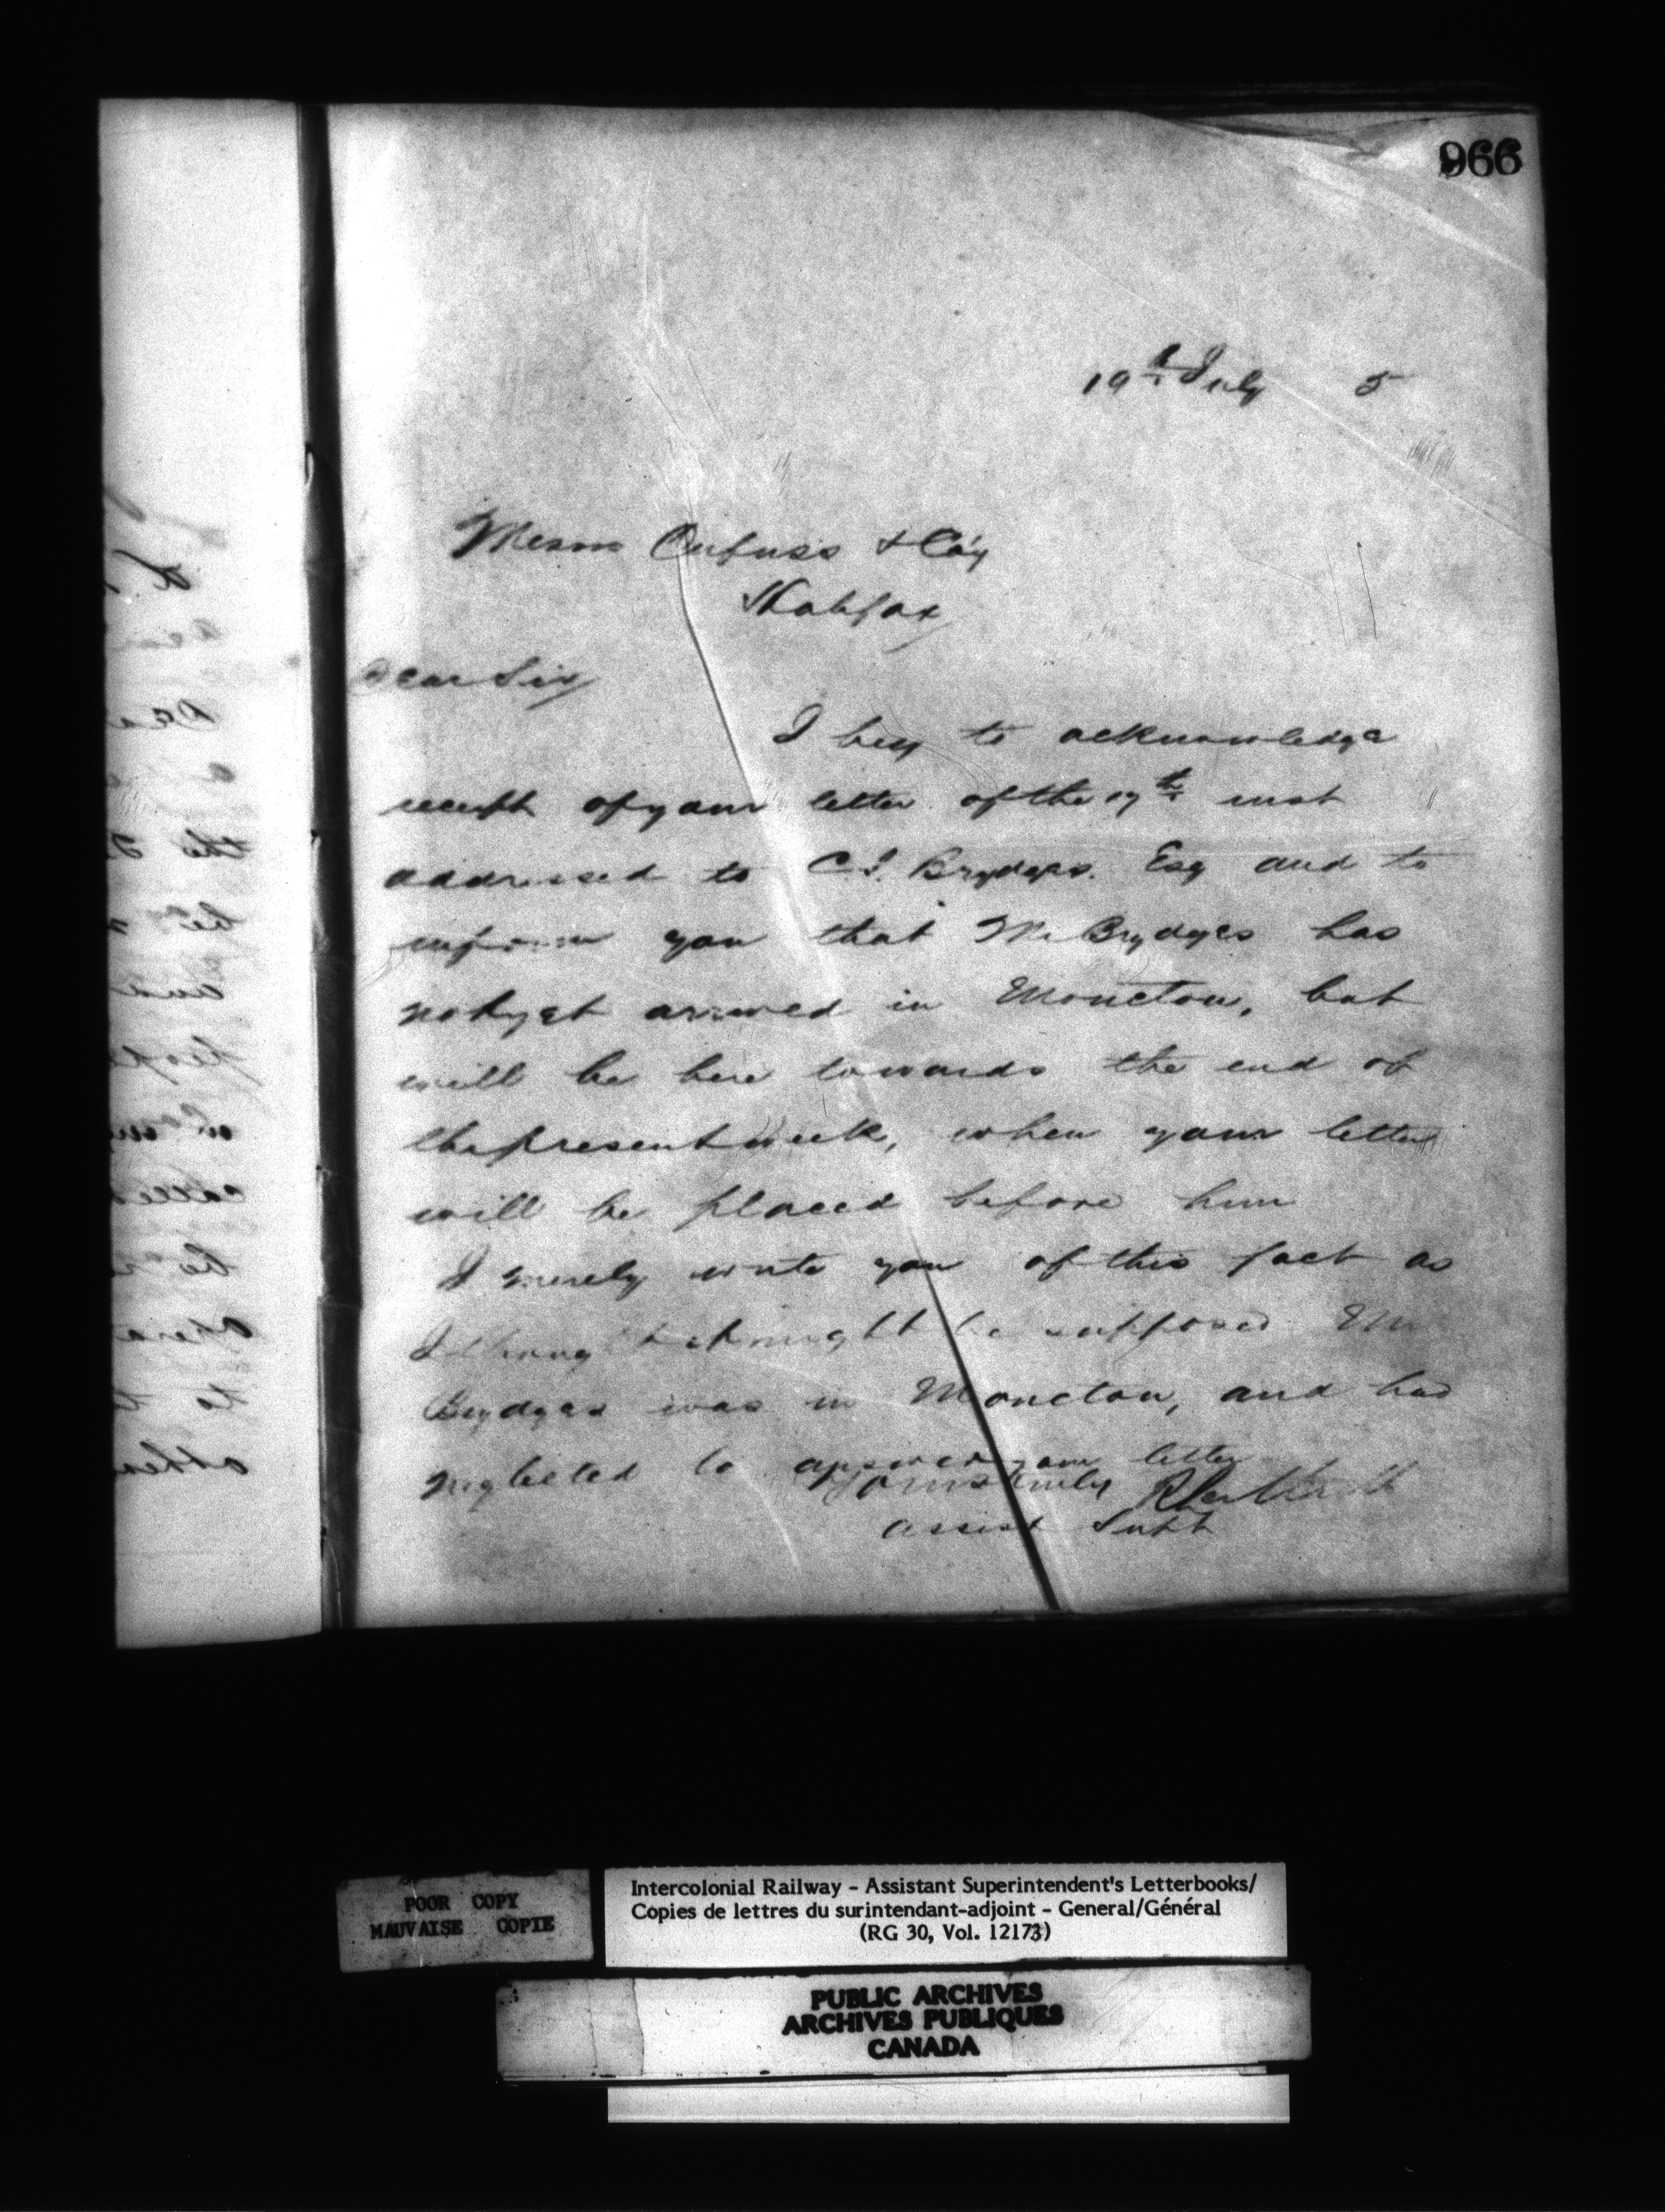 966
19th July 5
Messrs & Coy
Halifax
Dear Sir
I beg to acknowledge
receipt of your letter of the 17th inst
addressed to C.J. Brydges. Esq and to
inform you that Mr Brydges has
not yet arrived in Moncton, but
will be here towards the end of
the present week, when your letter
will be placed before him
I merely write you of this fact as
I thought it might be supposed Mr
Brydges was in Moncton, and had
neglected to answer your letter
Yours truly
Assist Supt
POOR COPY
MAUVAISE COPIE
Intercolonial Railway - Assistant Superintendent's Letterbooks/
Copies de lettres du surintendant-adjoint - General/Général
(RG 30, Vol. 12173)
PUBLIC ARCHIVES
ARCHIVES PUBLIQUES
CANADA